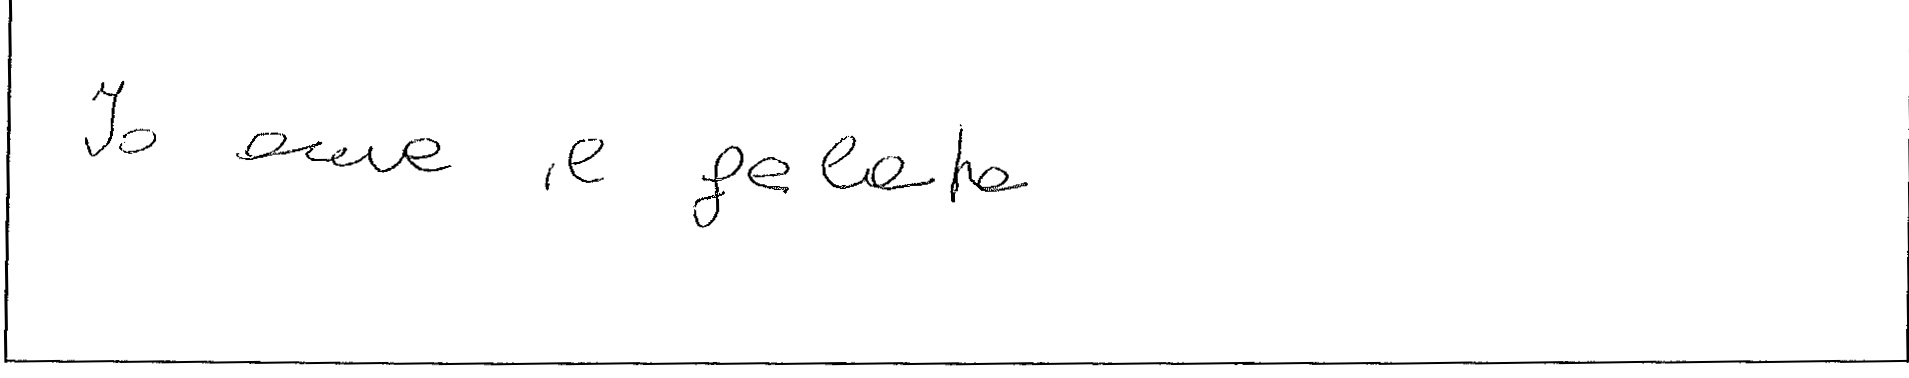 Io ame il gelato